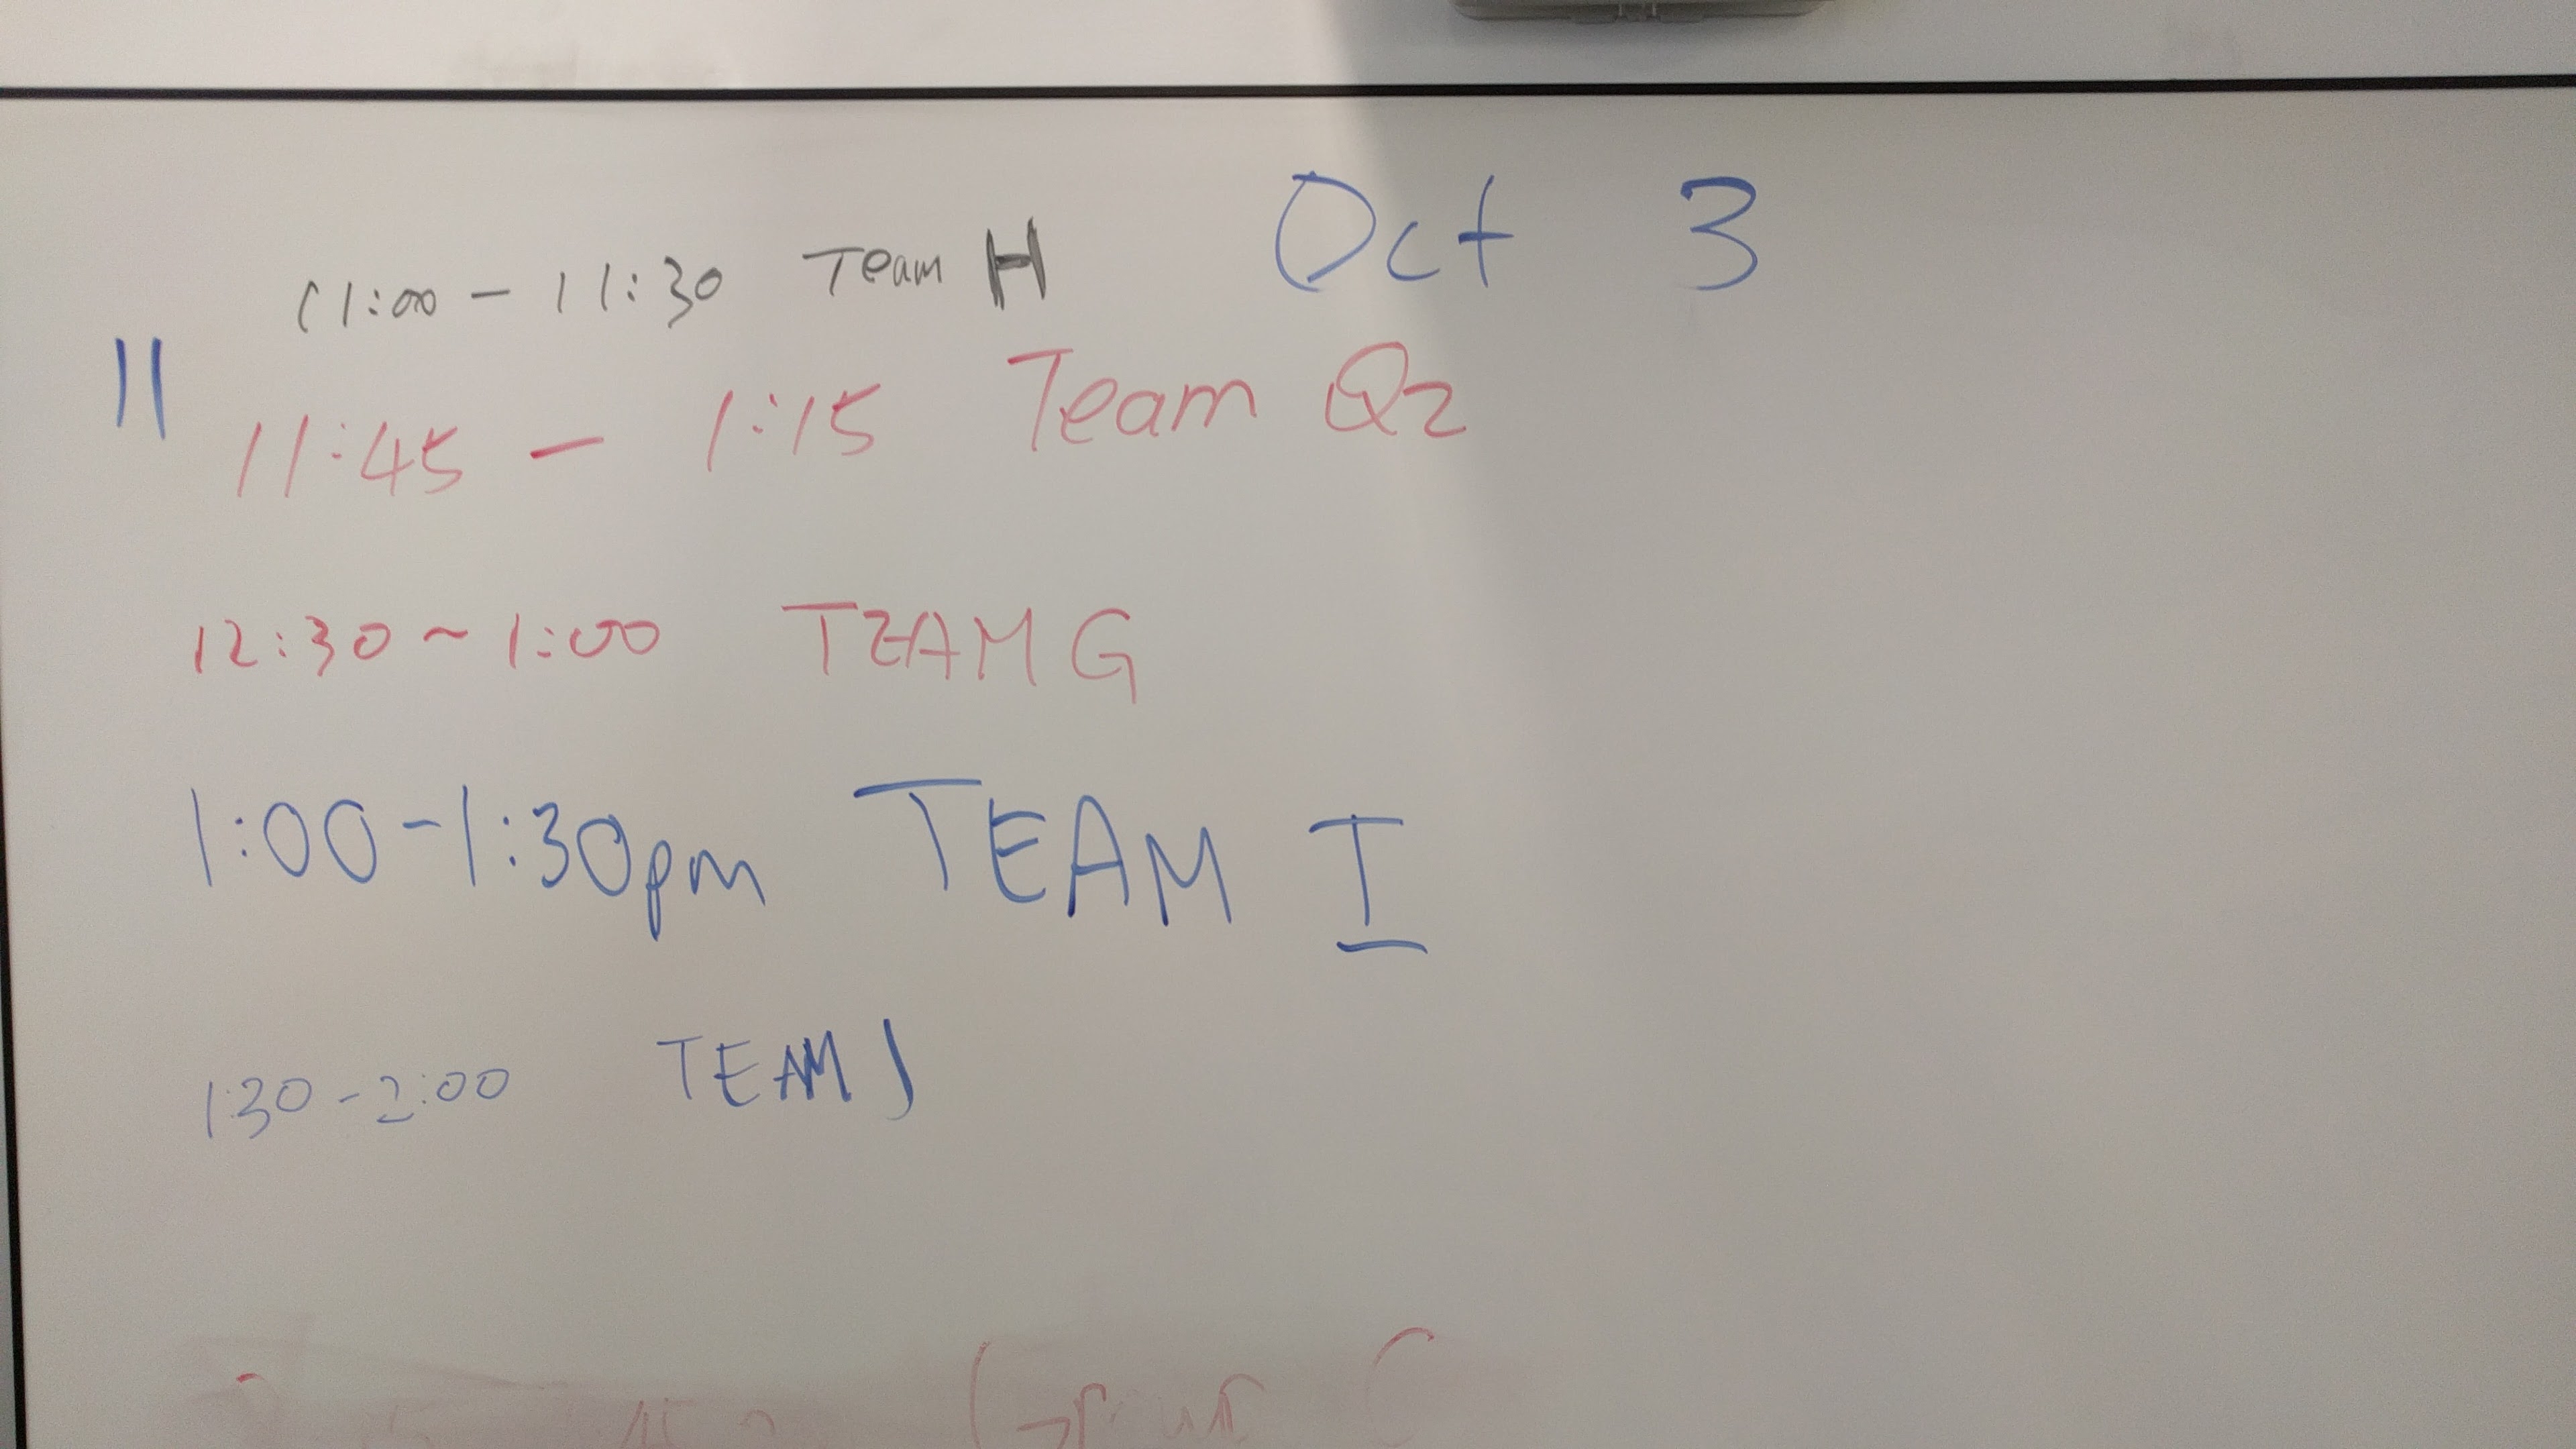 Oct 3
11:00 - 11:30 Team H
11
11:45 - 1:15 Team Q2
12:30 ~ 1:00 TEAM G
1:00-1:30pm TEAM I
1:30-2:00 TEAM J